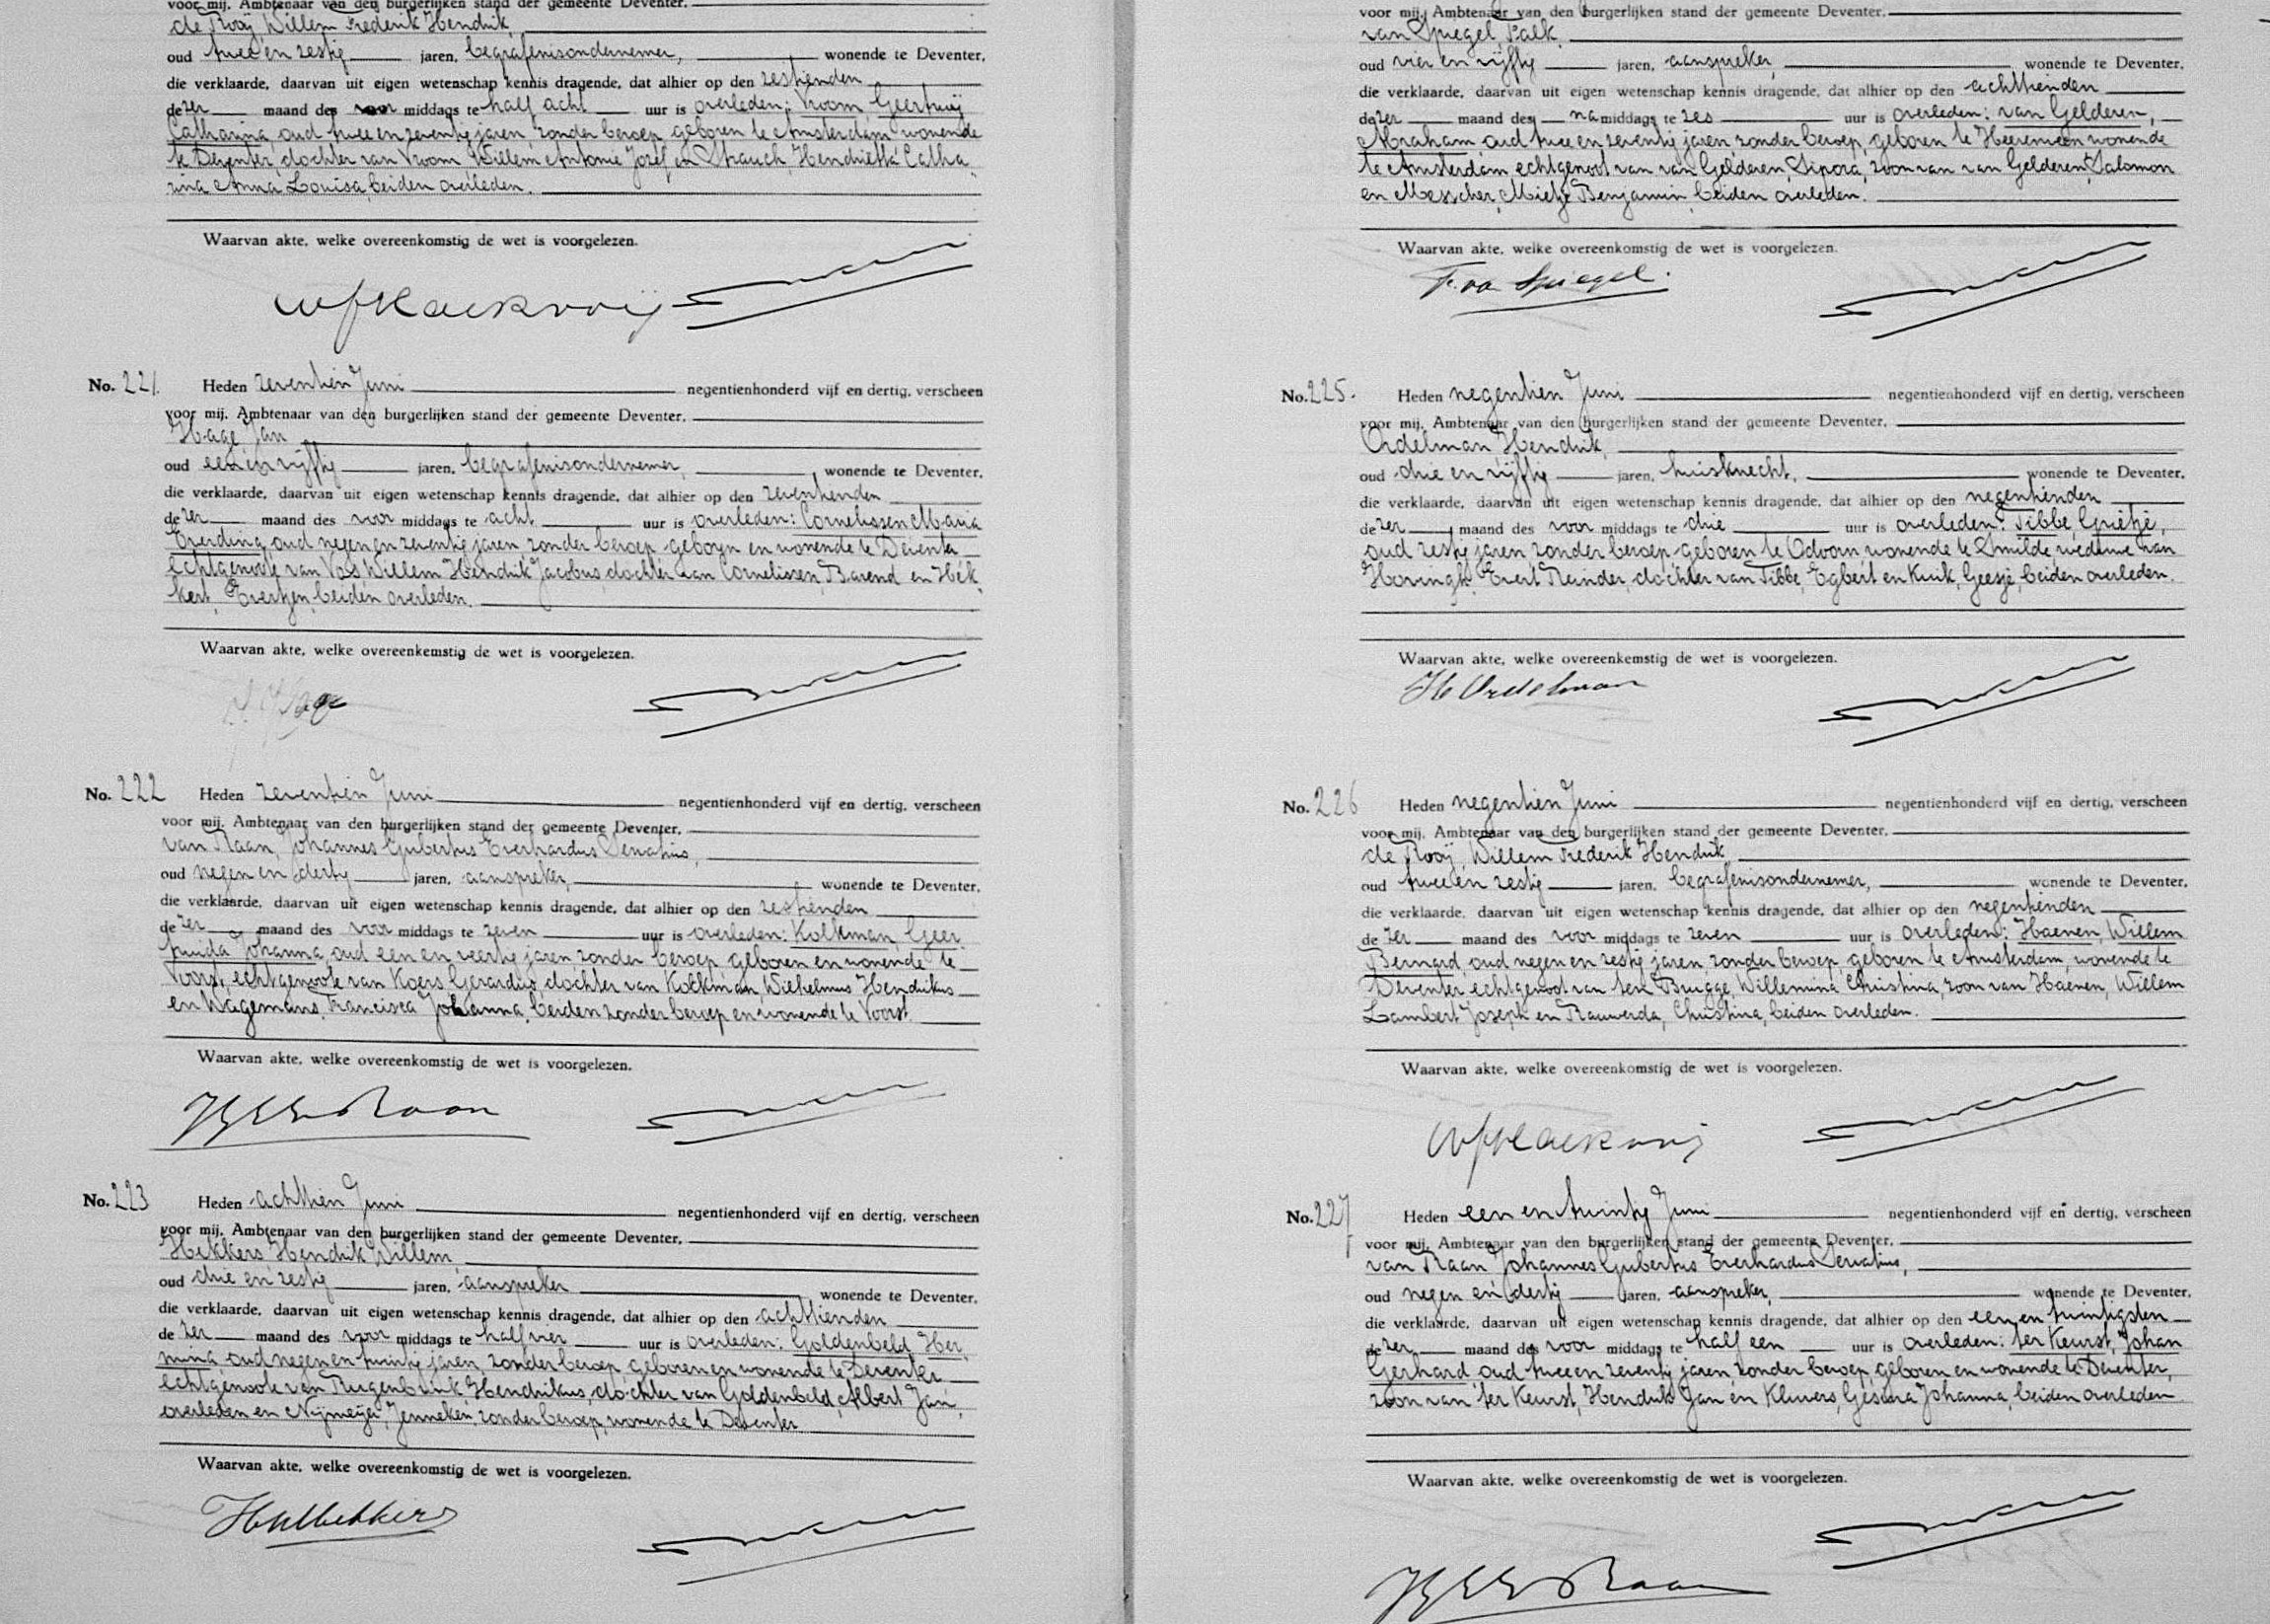 voor mij, Ambtenaar van den burgerlijken stand der gemeente Deventer.
de Rooij, Willem Frederik Hendrik,
oud twee en zestig jaren, begrafenisondernemer, wonende te Deventer,
die verklaarde, daarvan uit eigen wetenschap kennis dragende, dat alhier op den zestienden
dezer maand des voor middags te half acht uur is overleden: Vroom, Geertruij
Catharina, oud twee en zeventig jaren, zonder beroep, geboren te Amsterdam wonende
te Deventer, dochter van Vroom, Willem Antonie Jozef en Strauch, Hendrietta Catha
rina Anna Louisa, beiden overleden.
Waarvan akte, welke overeenkomstig de wet is voorgelezen.
No. 221. Heden zeventien Juni negentienhonderd vijf en dertig, verscheen
voor mij, Ambtenaar van den burgerlijken stand der gemeente Deventer,
Hage, Jan
oud een en vijftig jaren, begrafenisondernemer, wonende te Deventer,
die verklaarde, daarvan uit eigen wetenschap kennis dragende, dat alhier op den zeventienden
dezer maand des voor middags te acht uur is overleden: Cornelissen, Maria
Everdina, oud negen en zeventig jaren, zonder beroep, geboren en wonende te Deventer
echtgenoote van Vos, Willem Hendrik Jacobus, dochter van Cornelissen, Barend en Hek
kert, Evertjen, beiden overleden.
Waarvan akte, welke overeenkemstig de wet is voorgelezen.
J. Hage
No. 222 Heden zeventien Juni negentienhonderd vijf en dertig, verscheen
voor mij, Ambtenaar van den burgerlijken stand der gemeente Deventer,
van Raan, Johannes Gijbertus Everhardus Servatius,
oud negen en dertig jaren, aanspreker, wonende te Deventer,
die verklaarde, daarvan uit eigen wetenschap kennis dragende, dat alhier op den zestienden
dezer maand des voor middags te zeven uur is overleden: Kolkman, Geer
truida Johanna, oud een en veertig jaren, zonder beroep, geboren en wonende te
Voorst, echtgenoote van Koers, Gerardus, dochter van Kolkman, Wilhelmus Hendrikus
en Wagemans, Francisca Johanna, beiden zonder beroep en wonende te Voorst.
Waarvan akte, welke overeenkomstig de wet is voorgelezen.
No. 223 Heden achttien Juni negentienhonderd vijf en dertig, verscheen
voor mij, Ambtenaar van den burgerlijken stand der gemeente Deventer,
Hekkers, Hendrik Willem
oud drie en zestig jaren, aanspreker wonende te Deventer,
die verklaarde, daarvan uit eigen wetenschap kennis dragende, dat alhier op den achttienden
dezer maand des voor middags te half vier uur is overleden: Goldenbeld, Her
mina, oud negen en twintig jaren, zonder beroep, geboren en wonende te Deventer
echtgenoote van Hendrikus, dochter van Goldenbeld, Albert Jan,
overleden en Nijmeijer, Jenneken, zonder beroep, wonende te Deventer.
Waarvan akte, welke overeenkomstig de wet is voorgelezen.
HWHekkers
voor mij, Ambtenaar van den burgerlijken stand der gemeente Deventer,
van Spiegel, Falk,
oud vier en vijftig jaren, aanspreker, wonende te Deventer,
die verklaarde, daarvan uit eigen wetenschap kennis dragende, dat alhier op den achttienden
dezer maand des na middags te zes uur is overleden: van Gelderen,
Abraham, oud twee en zeventig jaren, zonder beroep, geboren te Heerenveen wonende
te Amsterdam, echtgenoot van van Gelderen, Sipora, zoon van van Gelderen, Salomon
en Messcher, Mietje Benjamin, beiden overleden.
Waarvan akte, welke overeenkomstig de wet is voorgelezen.
F. van Spiegel.
No. 225. Heden negentien Juni negentienhonderd vijf en dertig, verscheen
voor mij, Ambtenaar van den burgerlijken stand der gemeente Deventer,
Ordelman, Hendrik,
oud drie en vijftig jaren, huisknecht, wonende te Deventer,
die verklaarde, daarvan uit eigen wetenschap kennis dragende, dat alhier op den negentienden
dezer maand des voor middags te drie uur is overleden: Tibbe, Grietje,
oud zestig jaren, zonder beroep, geboren te Odoorn wonende te Smilde weduwe van
Hovingh, Evert Reinder, dochter van Tibbe, Egbert en Kuik, Geesje, beiden overleden.
Waarvan akte, welke overeenkemstig de wet is voorgelezen.
H Ordelman
No. 226 Heden negentien Juni negentienhonderd vijf en dertig, verscheen
voor mij, Ambtenaar van den burgerlijken stand der gemeente Deventer,
de Rooij, Willem Frederik Hendrik,
oud twee en zestig jaren, begrafenisondernemer, wonende te Deventer,
die verklaarde, daarvan uit eigen wetenschap kennis dragende, dat alhier op den negentienden
dezer maand des voor middags te zeven uur is overleden: Haenen, Willem
Bernard, oud negen en zestig jaren, zonder beroep, geboren te Amsterdam, wonende te
Deventer echtgenoot van ten Brugge, Willemina Christina, zoon van Haenen, Willem
Lambert Joseph en Rauwerda, Christina, beiden overleden.
Waarvan akte, welke overeenkomstig de wet is voorgelezen.
No. 227 Heden een en twintig Juni negentienhonderd vijf en dertig, verscheen
voor mij, Ambtenaar van den burgerlijken stand der gemeente Deventer,
van Raan, Johannes Gijbertus Everhardus Servatius,
oud negen en dertig jaren, aanspreker, wonende te Deventer,
die verklaarde, daarvan uit eigen wetenschap kennis dragende, dat alhier op den een en twintigsten
dezer maand des voor middags te half een uur is overleden: ter Keurst, Johan
Gerhard, oud twee en zeventig jaren, zonder beroep, geboren en wonende te Deventer,
zoon van ter Keurst, Hendrik Jan en Kluvers, Gesina Johanna, beiden overleden
Waarvan akte, welke overeenkomstig de wet is voorgelezen.